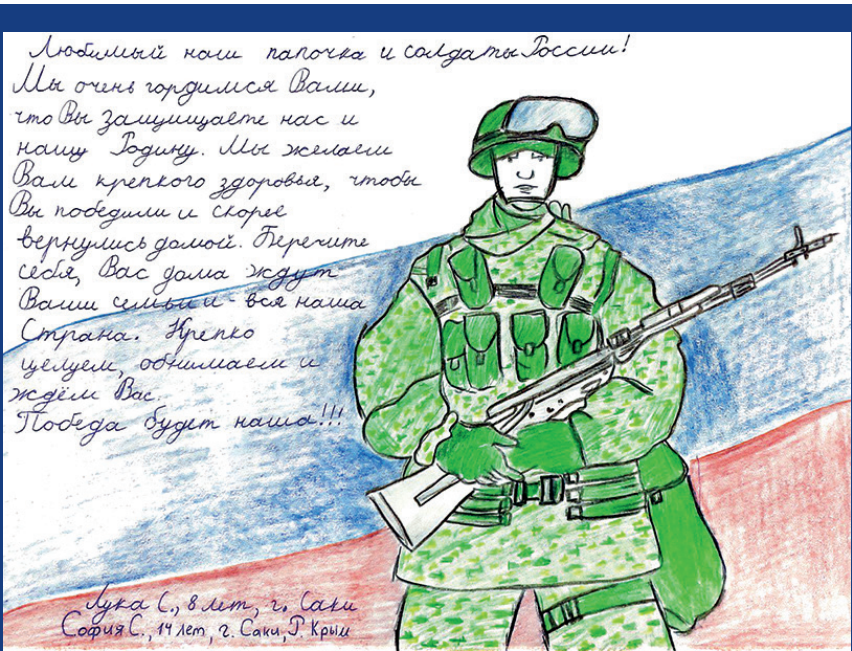 Любимый наш папочка и солдаты России!
Мы очень гордимся Вами,
что Вы защищаете нас и
нашу Родину. Мы желаем
Вам крепкого здоровья, чтобы
Вы победили и скорее
вернулись домой. Берегите
себя, Вас дома ждут
Ваши семьи и - вся наша
Страна. Крепко
целуем, обнимаем и
ждём Вас.
Победа будет наша!!!
Лука С., 8 лет, г. Саки
София С., 14 лет, г. Саки, Р. Крым